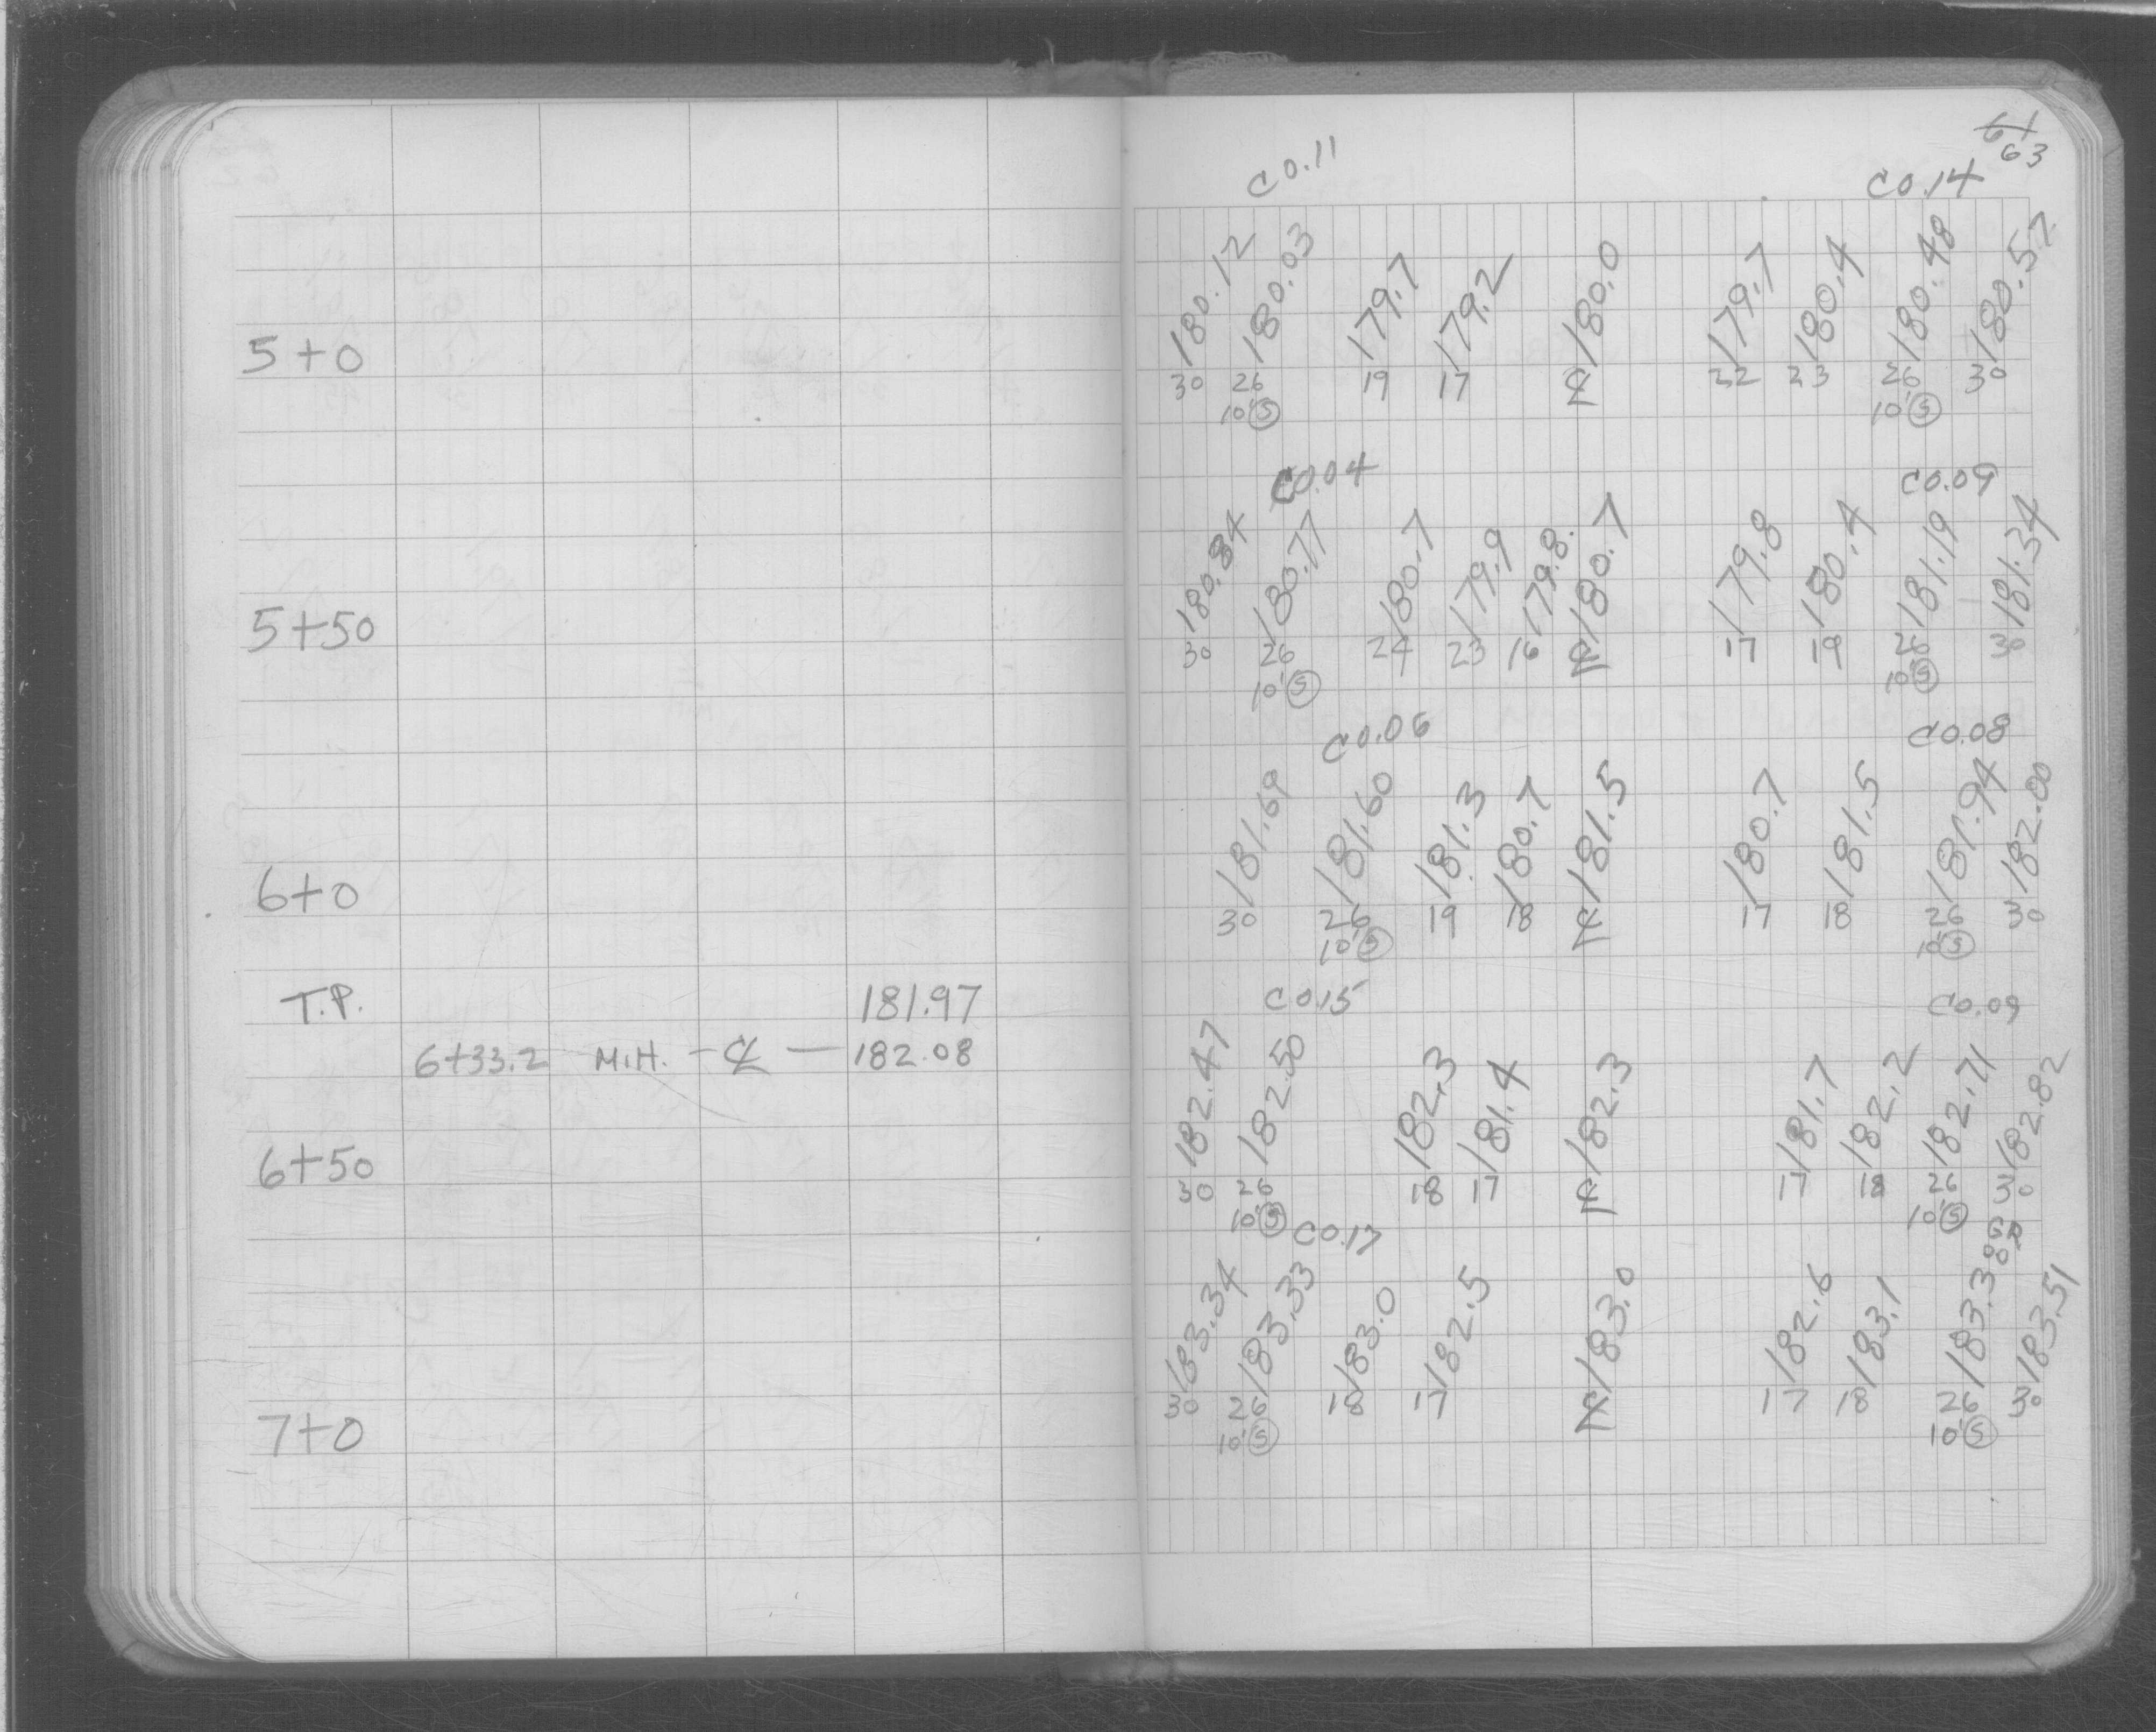 61
63
C 0.11
C 0.14
180.12 180.03 179.7 179.2 180.0 179.7 180.4 180.48 180.57
5+0
30 26 19 17 ℄ 22 23 26 30
10' Ⓢ 10' Ⓢ
C 0.04 C 0.09
180.84 180.77 180.7 179.9 179.8 180.7 179.8 180.4 181.19 181.34
5+50
30 26 24 23 16 ℄ 17 19 26 30
10' Ⓢ 10' Ⓢ
C 0.06 C 0.08
181.69 181.60 181.3 180.7 181.5 180.7 181.5 181.94 182.00
6+0
30 26 19 18 ℄ 17 18 26 30
10' Ⓢ 10' Ⓢ
T.P. 181.97
C 0.15 C 0.09
6+33.2 M.H. - ℄ — 182.08
182.47 182.50 182.3 181.4 182.3 181.7 182.2 182.71 182.82
6+50
30 26 18 17 ℄ 17 18 26 30
10' Ⓢ 10' Ⓢ
C 0.17 GR
183.34 183.33 183.0 182.5 183.0 182.6 183.1 183.38 183.51
30 26 18 17 ℄ 17 18 26 30
7+0
10' Ⓢ 10' Ⓢ